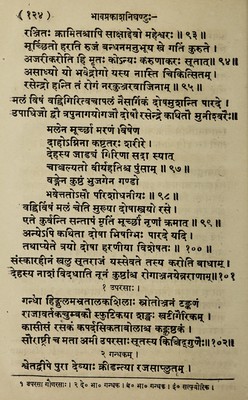 ( १२४ ) भावप्रकाशनिघण्टुः-
रञ्जितः क्रामितश्चापि साक्षाद्देवो महेश्वरः ॥ ९३ ॥
मूर्च्छितो हरति रुजं बन्धनमनुभूय खे गतिं कुरुते ।
अजरीकरोति हि मृतः कोऽन्यः करुणाकरः सूतात् ॥ ९४ ॥
असाध्यो यो भवेद्रोगो यस्य नास्ति चिकित्सितम् ।
रसेन्द्रो हन्ति तं रोगं नरकुञ्जरवाजिनाम् ॥ ९५ ॥
मलं विषं वह्निगिरित्वचापलं नैसर्गिकं दोषमुशन्ति पारदे ।
उपाधिजौ द्वौ त्रपुनागयोगजौ दोषौ रसेन्द्रे कथितौ मुनीश्वरैः ॥
मलेन मूर्च्छा मरणं विषेण
दाहोऽग्निना कष्टतरः शरीरे ।
देहस्य जाड्यं गिरिणा सदा स्यात्
चाञ्चल्यतो वीर्यहृतिश्च पुंसाम् ॥ ९७ ॥
वङ्गेन कुष्ठं भुजगेन गण्डो
भवेत्ततोऽसौ परिशोधनीयः ॥ ९८ ॥
वह्निर्विषं मलं चेति मुख्या दोषास्त्रयो रसे ।
एते कुर्वन्ति सन्तापं मृतिं मूर्च्छां नृणां क्रमात् ॥ ९९ ॥
अन्येऽपि कथिता दोषा भिषग्भिः पारदे यदि ।
तथाप्येते त्रयो दोषा हरणीया विशेषतः ॥ १०० ॥
संस्कारहीनं खलु सूतराजं यस्सेवते तस्य करोति बाधाम् ।
देहस्य नाशं विदधाति नूनं कुष्ठांश्च रोगाञ्जनयेन्नराणाम् ॥ १०१
१ उपरसाः ।
गन्धो हिङ्गुलमभ्रतालकशिलाः स्रोतोञ्जनं टङ्कणं
राजावर्तकचुम्बकौ स्फटिकया शङ्खः खटीगैरिकम् ।
कासीसं रसकं कपर्दसिकताबोलाश्च कङ्कुष्ठकं
सौराष्ट्री च मता अमी उपरसाः सूतस्य किञ्चिद्गुणैः ॥ १०२॥
२ गन्धकम् ।
श्वेतद्वीपे पुरा देव्याः क्रीडन्त्या रजसाप्लुतम् ।
१ उपरसा गौणरसाः । २ दे० भा० गन्धक । बं० गन्धक । ई०